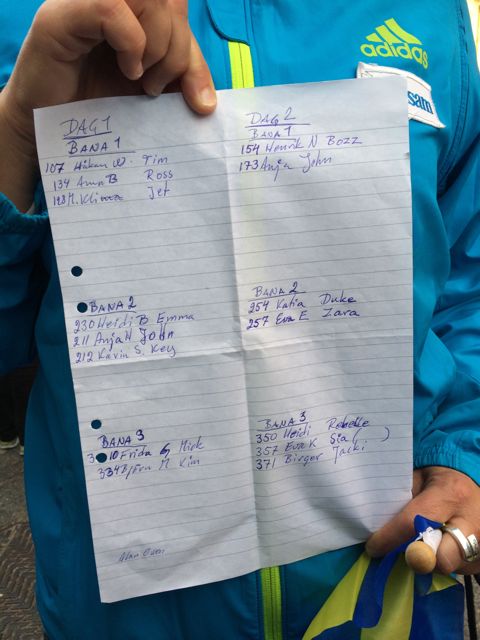 adidas
sam
DAG 1
BANA 1
107 Håkan W. Tim
134 Ann B Ross
Jet
BANA 2
230 Heidi B Emma
211 Anja H John
212 Karin S. Key
BANA 3
310 Frida G Mick
334 Björn M Kim
DAG 2
BANA 1
154 Henrik N Bozz
173 Anja John
BANA 2
254 Katia Duke
257 Eva E Zara
BANA 3
350 Heidi Rebelle
357 Eva K Sia ( )
371 Birger Jacki
Alan